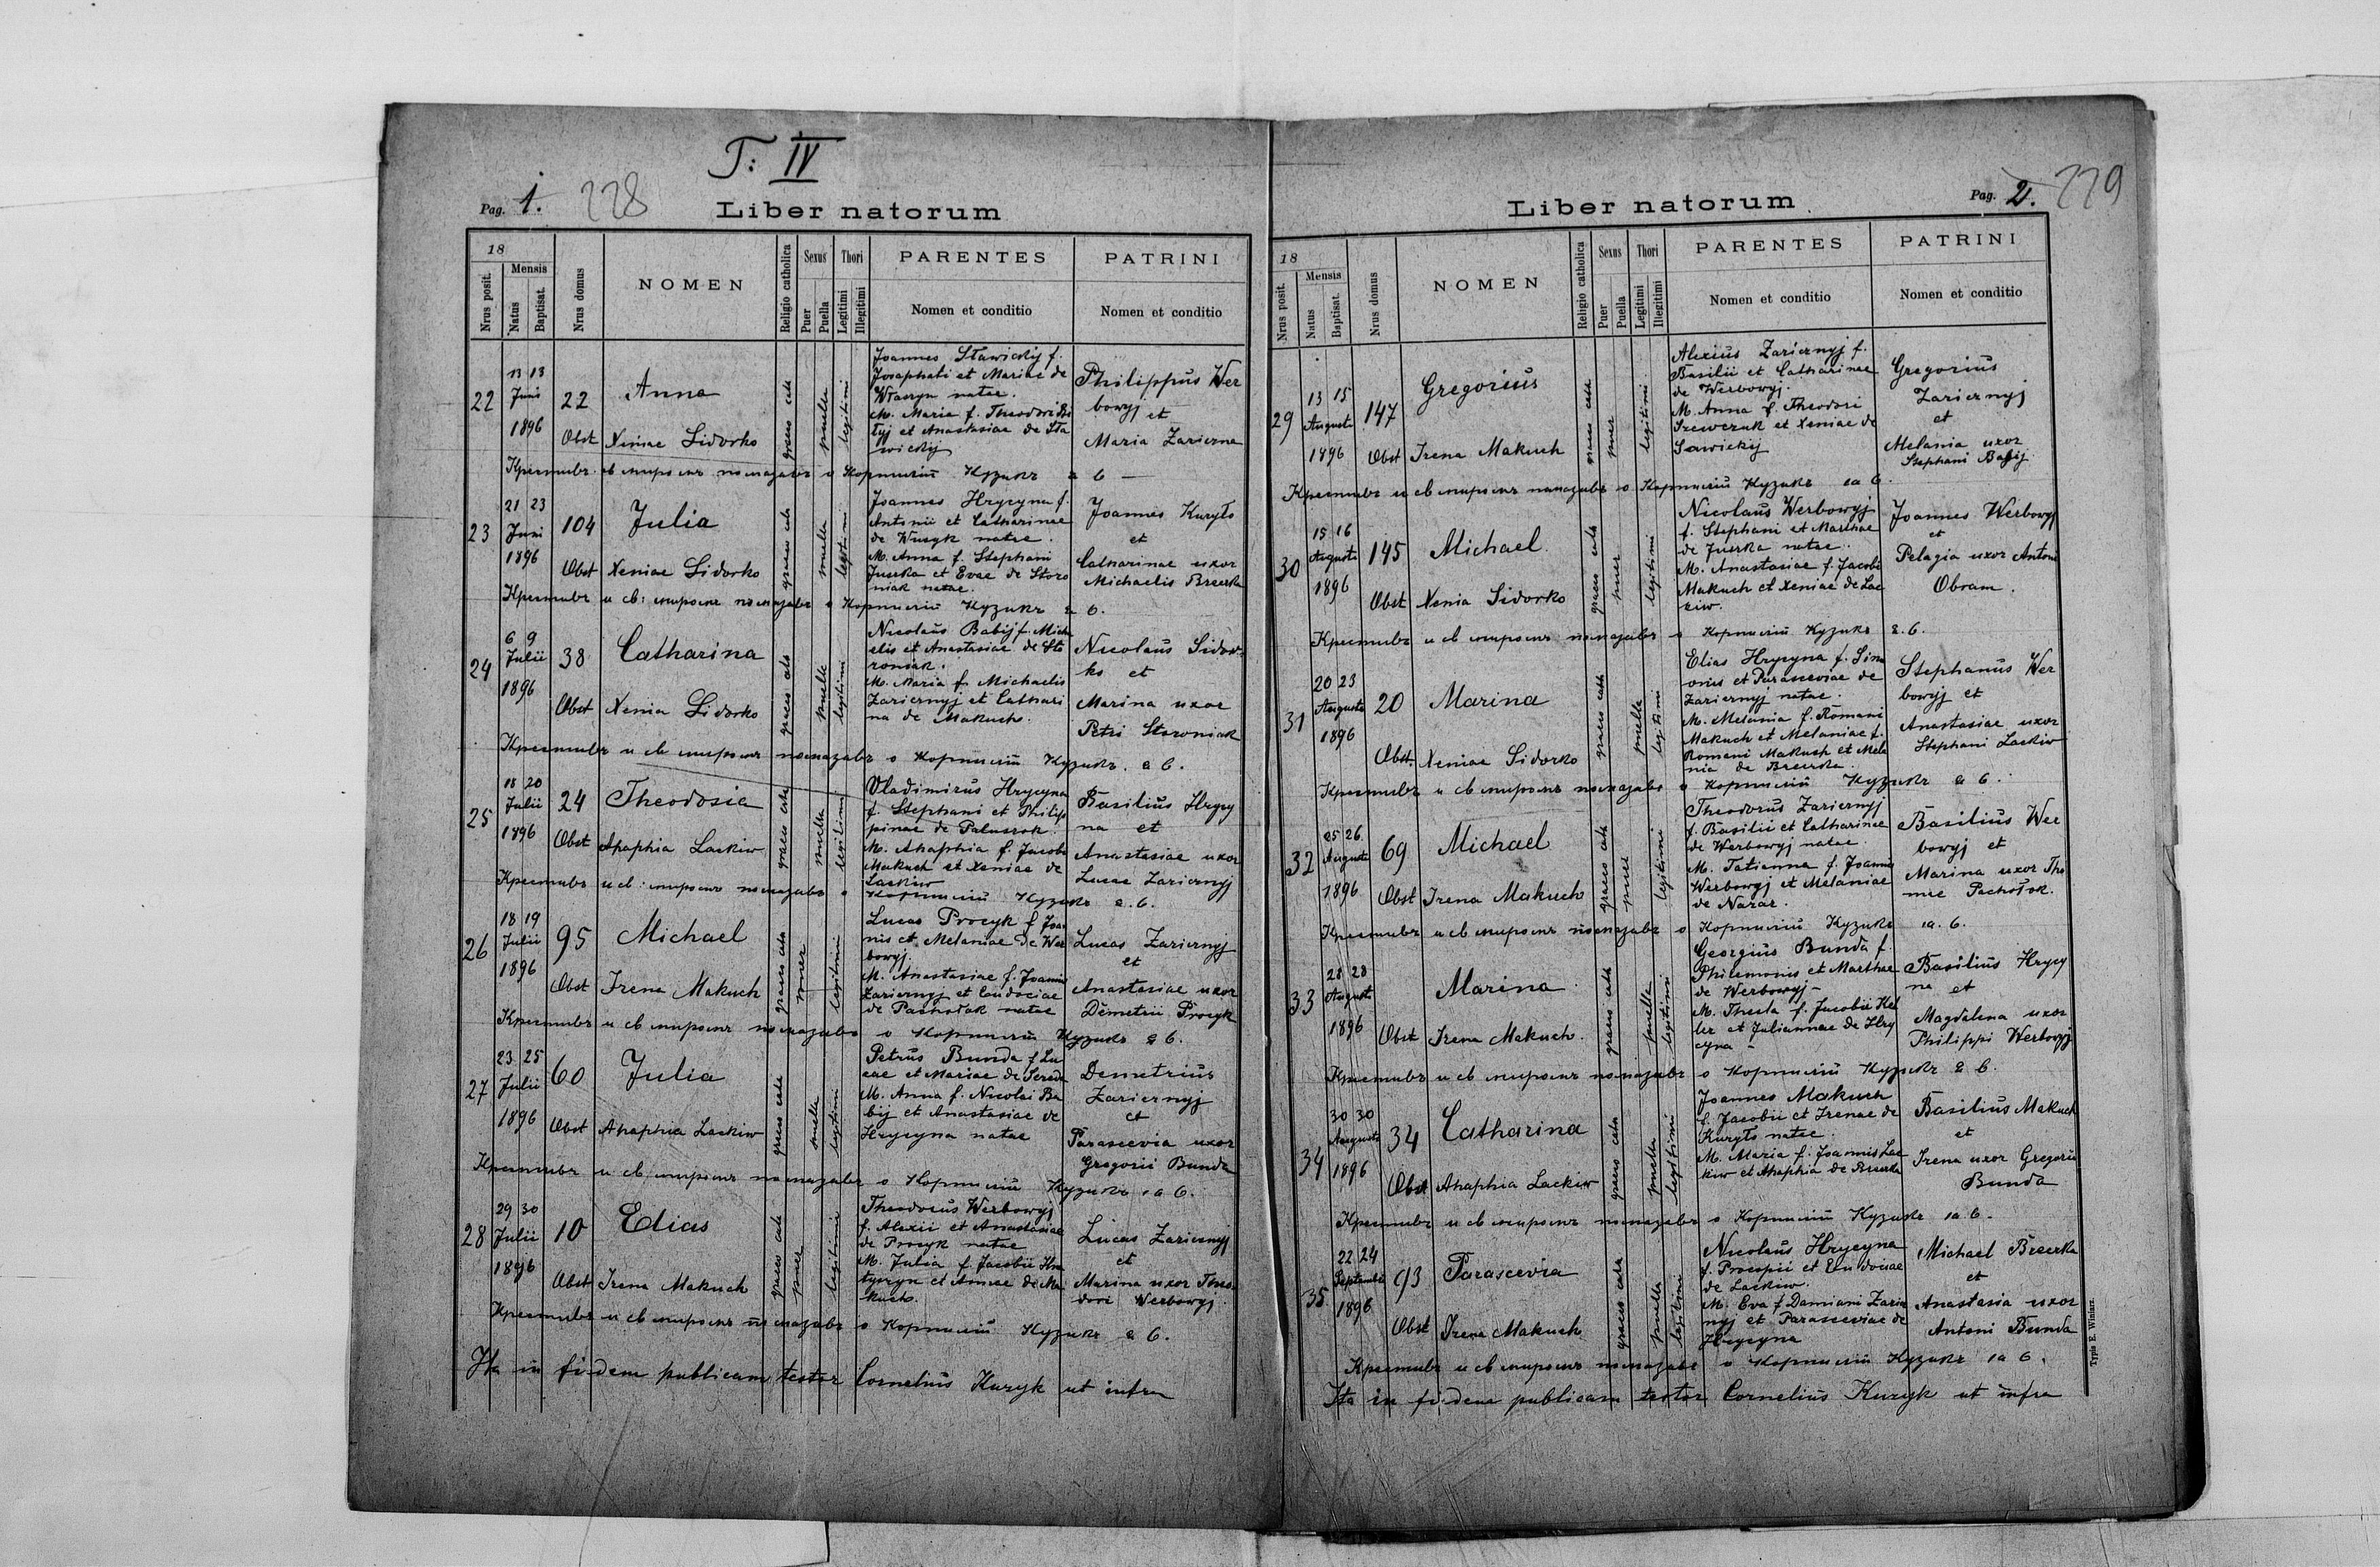 T: IV
Pag. 1. 228
Liber natorum
18
Mensis
Nrus posit.
Natus
Baptisat.
Nrus domus
NOMEN
Religio catholica
Sexus
Puer
Puella
Thori
Legitimi
Illegitimi
PARENTES
Nomen et conditio
PATRINI
Nomen et conditio
22
13 13
Juni
1896
22
Anna
Obst Xeniae Sidorko
graeco cath
puella
legitimi
Joannes Sławickij f.
Josaphati et Mariae de
natae.
M. Maria f. Theodori Bi
łyj et Anastasiae de Sła
wickij
Philippus Wer
bowyj et
Maria Zarierna
Крестивъ св муромъ помазавъ о Корнилій Кузикъ
23
21 23
Juni
1896
104
Julia
Obst Xeniae Sidorko
graeco cath
puella
legitimi
Joannes Hrycyna f.
Antonii et Catharinae
de natae.
M. Anna f. Stephani
Juerka et Evae de Storo
niak natae.
Joannes Kuryło
et
Catharinae uxor
Michaelis Breerka
Крестивъ и св: муромъ помазавъ о Корнилій Кузикъ
24
6 9
Julii
1896
38
Catharina
Obst Xenia Sidorko
graeco cath
puella
legitimi
Nicolaus Babij f. Mich
elis et Anastasiae de Sto
roniak.
M. Maria f. Michaelis
Zariernyj et Cathari
na de Makuch.
Nicolaus Sidor
ko et
Marina uxor
Petri Storoniak
Крестивъ и св муромъ помазавъ о Корнилій Кузикъ
25
18 20
Julii
1896
24
Theodosia
Obst Ahaphia Lackiw
graeco cath
puella
legitimi
Vladimirus Hrycyna
f. Stephani et Philip
pinae de
M. Ahaphia f. Jacobi
Makuch et Xeniae de
Lackiw
Basilius Hrycy
na et
Anastasiae uxor
Lucae Zariernyj
Крестивъ и св: муромъ помазавъ о Корнилій Кузикъ
26
18 19
Julii
1896
95
Michael
Obst Irena Makuch
graeco cath
puer
legitimi
Lucas Procyk f Joan
nis et Melaniae de Wer
bowyj.
M. Anastasiae f. Joannis
Zariernyj et Eudociae
de Pachołak natae
Lucas Zariernyj
et
Anastasiae uxor
Demetrii Procyk
Крестивъ и св муромъ помазавъ о Корнилій Кузикъ
27
23 25
Julii
1896
60
Julia
Obst Ahaphia Lackiw
graeco cath
puella
legitimi
Petrus Bunda f Lu
cae et Mariae de Sereda
M. Anna f. Nicolai Ba
bij et Anastasiae de
Hrycyna natae
Demetrius
Zariernyj
et
Parascevia uxor
Gregorii Bunda
Крестивъ и св муромъ помазавъ о Корнилій Кузикъ
28
29 30
Julii
1896
10
Elias
Obst Irena Makuch
graeco cath
puer
legitimi
Theodorus Werbowyj
f. Alexii et Anastasiae
de Procyk natae
M. Julia f. Jacobii
et Annae de Ma
kuch.
Lucas Zariernyj
et
Marina uxor Theo
dori Werbowyj.
Крестивъ и св муромъ помазавъ о Корнилій Кузикъ
Ita in fidem publicam testor Cornelius Kuzyk ut infra
Pag. 2. 229
Liber natorum
18
Mensis
Nrus posit.
Natus
Baptisat.
Nrus domus
NOMEN
Religio catholica
Sexus
Puer
Puella
Thori
Legitimi
Illegitimi
PARENTES
Nomen et conditio
PATRINI
Nomen et conditio
29
13 15
Augusti
1896
147
Gregorius
Obst Irena Makuch
graeco cath
puer
legitimi
Alexius Zariernyj f.
Basilii et Catharinae
de Werbowyj.
M. Anna f. Theodori
Szewczuk et Xeniae de
Sawickij
Gregorius
Zariernyj
et
Melania uxor
Stephani Babij
Крестивъ и св муромъ помазавъ о Корнилій Кузикъ
30
15 16
Augusti
1896
145
Michael.
Obst Xenia Sidorko
graeco cath
puer
legitimi
Nicolaus Werbowyj
f. Stephani et Marthae
de Juerka natae.
M. Anastasiae f. Jacobi
Makuch et Xeniae de Lac
kiw.
Joannes Werbowyj
et
Pelagia uxor Antoni
Obram.
Крестивъ и св муромъ помазавъ о Корнилій Кузикъ
31
20 23
Augusti
1896
20
Marina
Obst. Xeniae Sidorko
graeco cath
puella
legitimi
Elias Hrycyna f. Sim
onis et Parasceviae de
Zariernyj natae.
M. Melania f. Romani
Makuch et Melaniae f.
Romani Makuch et Mela
nia de Breerka.
Stephanus Wer
bowyj et
Anastasiae uxor
Stephani Lackiw
Крестивъ и св муромъ помазавъ о Корнилій Кузикъ
32
25 26
Augusti
1896
69
Michael
Obst Irena Makuch
graeco cath
puer
legitimi
Theodorus Zariernyj
f. Basilii et Catharinae
de Werbowyj natae
M. Tatianna f. Joannis
Werbowyj et Melaniae
de Nazar.
Basilius Wer
bowyj et
Marina uxor Tho
mae Pachołok.
Крестивъ и св муромъ помазавъ о Корнилій Кузикъ
33
28 28
Augusti
1896
Marina
Obst Irena Makuch.
graeco cath
puella
legitimi
Georgius Bunda f.
Philemonis et Marthae
de Werbowyj
M. Thecla f. Jacobii Kel
ler et Juliannae de Hry
cyna
Basilius Hrycy
na et
Magdalena uxor
Philippi Werbowyj
Крестивъ и св муромъ помазавъ о Корнилій Кузикъ
34
30 30
Augusti
1896
34
Catharina
Obst Ahaphia Lackiw
graeco cath
puella
legitimi
Joannes Makuch
f. Jacobii et Irenae de
Kuryło natae.
M. Maria f. Joannis Lac
kiw et Ahaphia de Breerka
Basilius Makuch
et
Irena uxor Gregorii
Bunda
Крестивъ и св муромъ помазавъ о Корнилій Кузикъ
35
22 24
Septembri
1896
93
Parascevia
Obst Irena Makuch
graeco cath
puella
legitimi
Nicolaus Hrycyna
f. Procopii et Eudociae
de Lackiw.
M. Eva f Damiani Zarier
nyj et Parasceviae de
Hrycyna
Michael Breerka
et
Anastasia uxor
Antoni Bunda
Крестивъ и св муромъ помазавъ о Корнилій Кузикъ
Ita in fidem publicam testor Cornelius Kuzyk ut infra
Typis E. Winiarz.